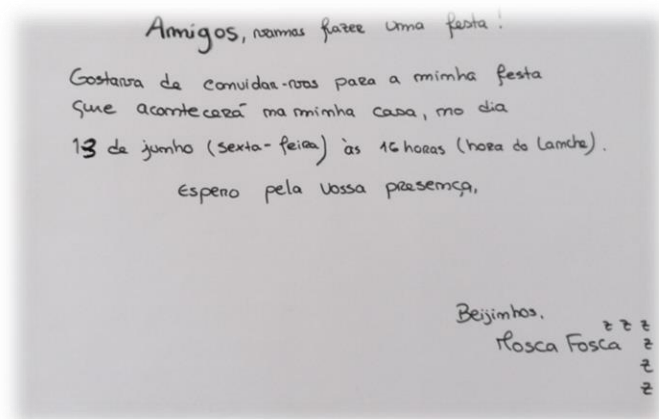 Amigos, vamos fazer uma festa!
Gostava de convidar-vos para a minha festa
que acontecerá na minha casa, no dia
13 de junho (sexta-feira) às 16 horas (hora do lanche).
Espero pela vossa presença,
Beijinhos,
Mosca Fosca z z z
z
z
z